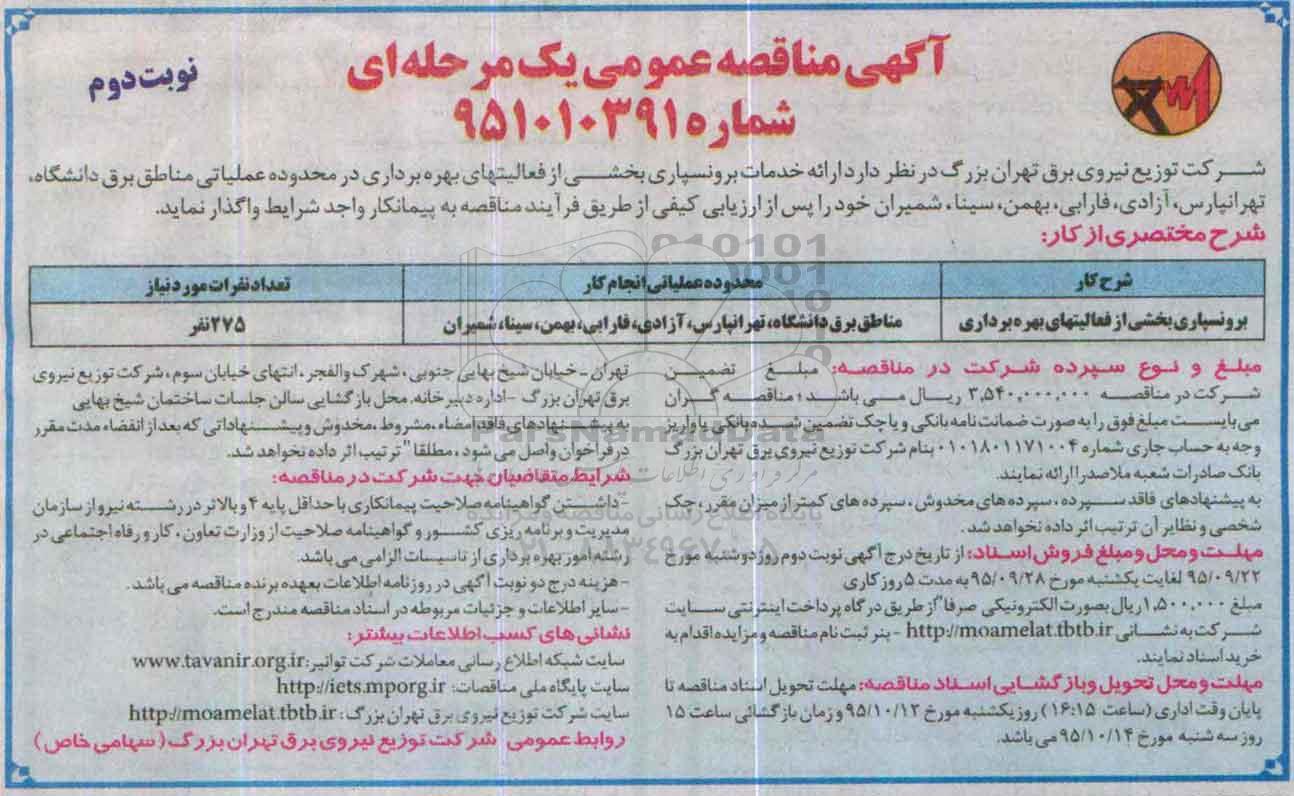 آگهی مناقصه عمومی یک مرحله‌ای
شماره ۹۵۱۰۱۰۳۹۱
نوبت دوم
شرکت توزیع نیروی برق تهران بزرگ در نظر دارد ارائه خدمات برونسپاری بخشی از فعالیتهای بهره برداری در محدوده عملیاتی مناطق برق دانشگاه،
تهرانپارس، آزادی، فارابی، بهمن، سینا، شمیران خود را پس از ارزیابی کیفی از طریق فرآیند مناقصه به پیمانکار واجد شرایط واگذار نماید.
شرح مختصری از کار:
شرح کار
محدوده عملیاتی انجام کار
تعداد نفرات مورد نیاز
برونسپاری بخشی از فعالیتهای بهره برداری
مناطق برق دانشگاه، تهرانپارس، آزادی، فارابی، بهمن، سینا، شمیران
۲۷۵ نفر
مبلغ و نوع سپرده شرکت در مناقصه: مبلغ تضمین
شرکت در مناقصه ۳,۵۴۰,۰۰۰,۰۰۰ ریال می باشد؛ مناقصه گران
می بایست مبلغ فوق را به صورت ضمانت نامه بانکی و یا چک تضمین شده بانکی یا واریز
وجه به حساب جاری شماره ۰۱۰۱۸۰۱۱۷۱۰۰۴ بنام شرکت توزیع نیروی برق تهران بزرگ
بانک صادرات شعبه ملاصدرا ارائه نمایند.
به پیشنهادهای فاقد سپرده، سپرده های مخدوش، سپرده های کمتر از میزان مقرر، چک
شخصی و نظایر آن ترتیب اثر داده نخواهد شد.
مهلت و محل و مبلغ فروش اسناد: از تاریخ درج آگهی نوبت دوم روز دوشنبه مورخ
۹۵/۰۹/۲۲ لغایت یکشنبه مورخ ۹۵/۰۹/۲۸ به مدت ۵ روز کاری
مبلغ ۱,۵۰۰,۰۰۰ ریال بصورت الکترونیکی صرفا" از طریق درگاه پرداخت اینترنتی سایت
شرکت به نشانی http://moamelat.tbtb.ir - بنر ثبت نام مناقصه و مزایده اقدام به
خرید اسناد نمایند.
مهلت و محل تحویل و بازگشایی اسناد مناقصه: مهلت تحویل اسناد مناقصه تا
پایان وقت اداری (ساعت ۱۶:۱۵) روز یکشنبه مورخ ۹۵/۱۰/۱۲ و زمان بازگشائی ساعت ۱۵
روز سه شنبه مورخ ۹۵/۱۰/۱۴ می باشد.
تهران - خیابان شیخ بهایی جنوبی، شهرک والفجر، انتهای خیابان سوم، شرکت توزیع نیروی
برق تهران بزرگ - اداره دبیرخانه. محل بازگشایی سالن جلسات ساختمان شیخ بهایی
به پیشنهادهای فاقد امضاء، مشروط، مخدوش و پیشنهاداتی که بعد از انقضاء مدت مقرر
در فراخوان واصل می شود، مطلقا" ترتیب اثر داده نخواهد شد.
شرایط متقاضیان جهت شرکت در مناقصه:
- داشتن گواهینامه صلاحیت پیمانکاری با حداقل پایه ۴ و بالاتر در رشته نیرو از سازمان
مدیریت و برنامه ریزی کشور و گواهینامه صلاحیت از وزارت تعاون، کار و رفاه اجتماعی در
رشته امور بهره برداری از تاسیسات الزامی می باشد.
- هزینه درج دو نوبت آگهی در روزنامه اطلاعات بعهده برنده مناقصه می باشد.
- سایر اطلاعات و جزئیات مربوطه در اسناد مناقصه مندرج است.
نشانی های کسب اطلاعات بیشتر:
سایت شبکه اطلاع رسانی معاملات شرکت توانیر: www.tavanir.org.ir
سایت پایگاه ملی مناقصات: http://iets.mporg.ir
سایت شرکت توزیع نیروی برق تهران بزرگ: http://moamelat.tbtb.ir
روابط عمومی شرکت توزیع نیروی برق تهران بزرگ (سهامی خاص)
ParsNamadData